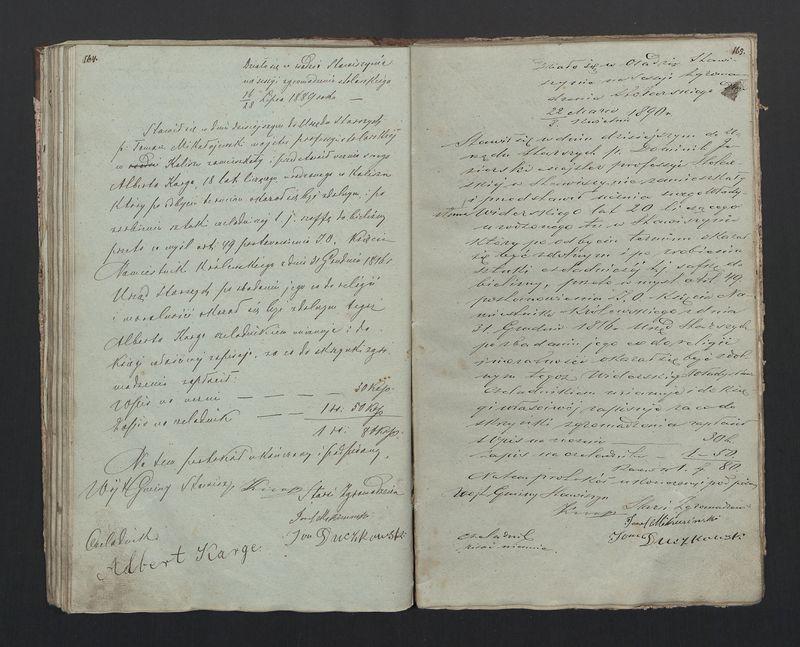 164.
Działo się w osadzie Stawiszynie
na sesyi zgromadzenia stolarskiego
16/28 Lipca 1889 roku —
Stawił się w dniu dzisiejszym do Urzędu Starszych
p. Tomasz Mikołajewski majster professyi stolarskiej
w Kaliszu zamieszkały i przedstawił ucznia swego
Alberta Karge, 18 lat liczącego urodzonego w Kaliszu
Który po odbyciu terminu okazał się być zdolnym i po
zrobieniu sztuki czeladniczej t. j. szafę do bielizny
przeto w myśl art: 49 postanowienia J. O. Księcia
Namiestnika Królewskiego z dnia 31 Grudnia 1816 r
Urząd Starszych po zbadaniu jego co do religii
i moralności okazał się być zdolnym tegoż
Alberta Karge czeladnikiem mianuje i do
Księgi właściwej zapisuje, za co do skrzynki zgro-
madzenia zapłacił:
Wpis na ucznia — — — — 30 kop.
Zapis na czeladnika — — 1 rs: 50 kop
1 rs: 80 kop.
Na tem protokół ukończony i podpisany.
Wójt Gminy Stawiszyn
Starsi Zgromadzenia
Jan Duczkowski
Czeladnik
Albert Karge.
165.
Działo się w Osadzie Stawi-
szynie na sesyi Zgroma-
dzenia Stolarskiego
22 Marca / 3 Kwietnia 1890 r
Stawił się w dniu dzisiejszym do U-
rzędu Starszych p. Dominik
majster professyi Stolar-
skiej w Stawiszynie zamieszkały
i przedstawił ucznia swego Włady-
sława Widerskiego lat 20 liczącego
urodzonego tu w Stawiszynie
Który po odbyciu terminu okazał
się być zdolnym i po zrobieniu
sztuki czeladniczej t.j. szafę do
bielizny, przeto w myśl art. 49
postanowienia J. O. Księcia Na-
miestnika Królewskiego z dnia
31 Grudnia 1816 r. Urząd Starszych
po zbadaniu jego co do religii
i moralności okazał się być zdol-
nym tegoż Widerskiego Władysława
czeladnikiem mianuje i do księ-
gi właściwej zapisuje za co do
skrzynki zgromadzenia zapłacił
Wpis na ucznia — 30 k.
zapis na czeladnika — 1 - 50.
80.
Na tem protokół ukończony i podpisany
Wójt Gminy Stawiszyn
Starsi Zgromadzenia
Jan Duczkowski
czeladnik
pisać nieumie.